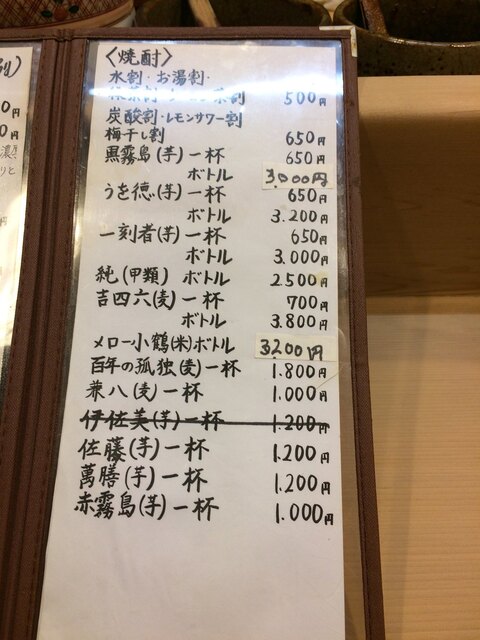 〈焼酎〉
水割・お湯割・
割 500円
炭酸割・レモンサワー割
梅干し割 650円
黒霧島(芋)一杯 650円
ボトル 3,000円
うを徳(芋)一杯 650円
ボトル 3.200円
一刻者(芋)一杯 650円
ボトル 3.000円
純(甲類) ボトル 2500円
吉四六(麦)一杯 700円
ボトル 3.800円
メロー小鶴(米)ボトル 3200円
百年の孤独(麦)一杯 1.800円
兼八(麦)一杯 1.000円
伊佐美(芋)一杯 1.200円
佐藤(芋)一杯 1.200円
萬膳(芋)一杯 1.200円
赤霧島(芋)一杯 1.000円